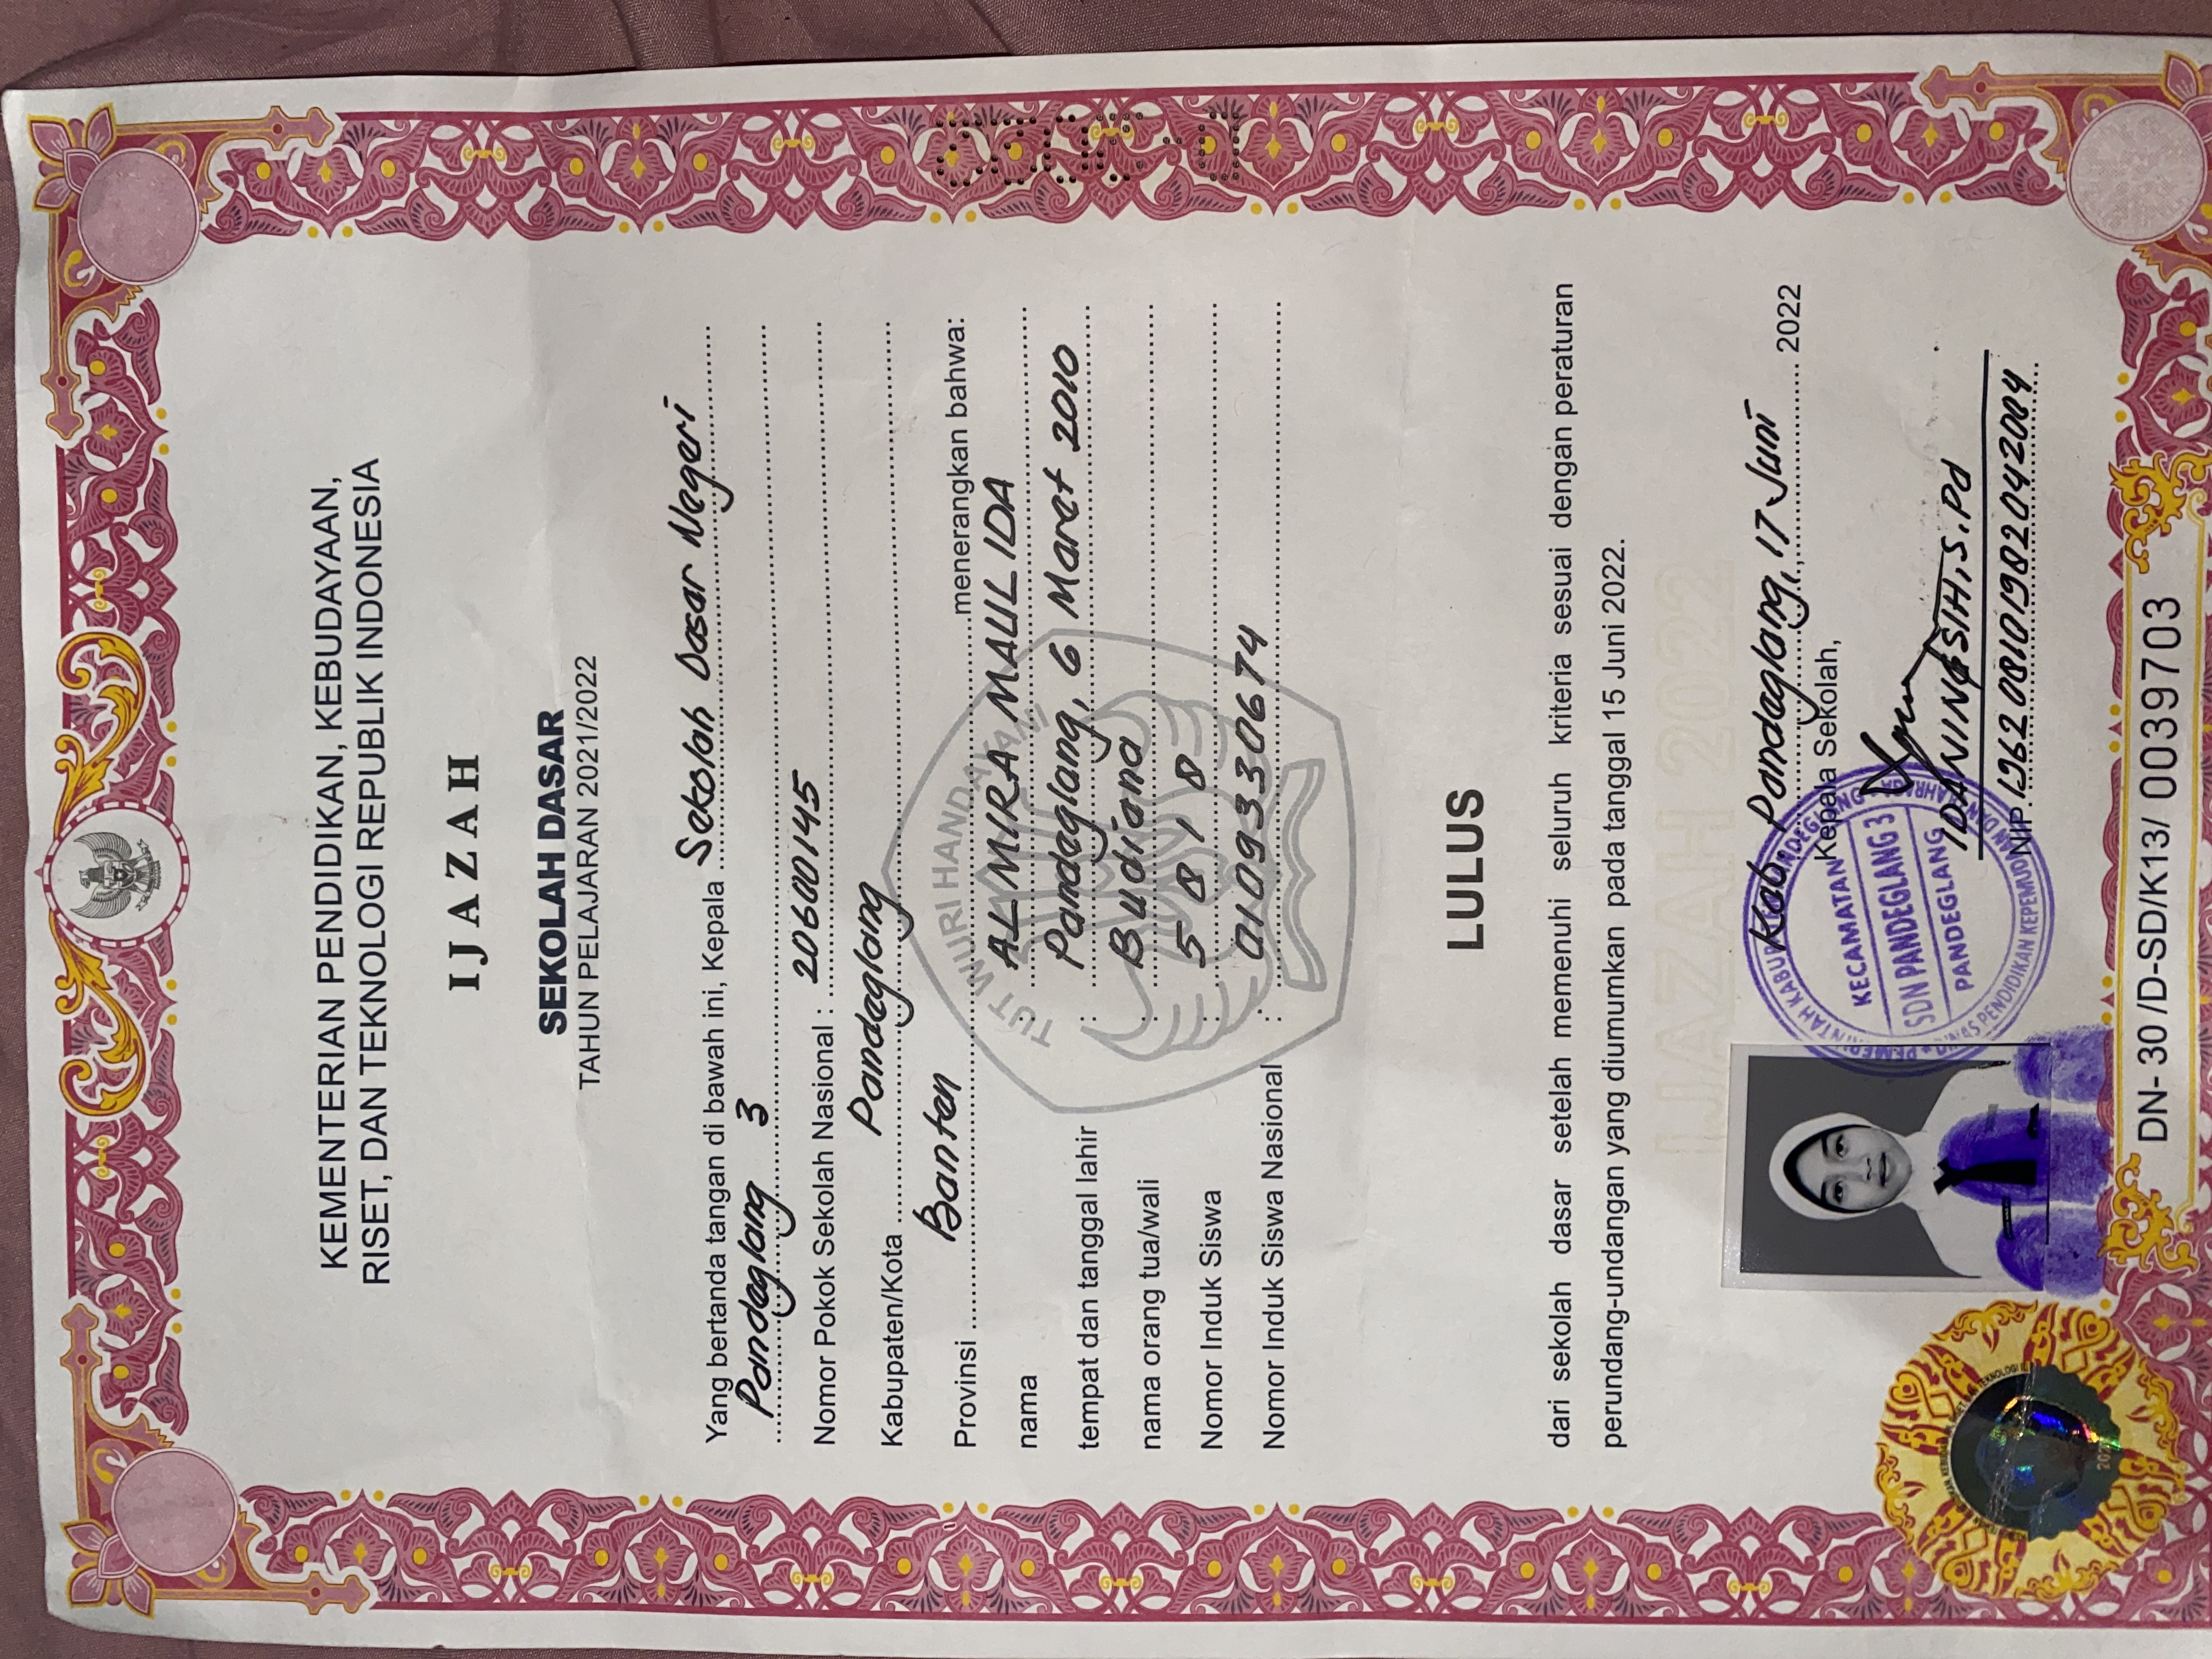 KEMENTERIAN PENDIDIKAN, KEBUDAYAAN,
RISET, DAN TEKNOLOGI REPUBLIK INDONESIA
IJAZAH
SEKOLAH DASAR
TAHUN PELAJARAN 2021/2022
Yang bertanda tangan di bawah ini, Kepala Sekolah Dasar Negeri
Pandeglang 3
Nomor Pokok Sekolah Nasional : 20600145
Kabupaten/Kota Pandeglang
Provinsi Banten menerangkan bahwa:
TUT WURI HANDAYANI
nama : ALMIRA MAULIDA
tempat dan tanggal lahir : Pandeglang, 6 Maret 2010
nama orang tua/wali : Budiana
Nomor Induk Siswa : 5818
Nomor Induk Siswa Nasional : 0109330674
LULUS
dari sekolah dasar setelah memenuhi seluruh kriteria sesuai dengan peraturan
perundang-undangan yang diumumkan pada tanggal 15 Juni 2022.
IJAZAH 2022
Kab. Pandeglang, 17 Juni 2022
Kepala Sekolah,
PEMERINTAH KABUPATEN PANDEGLANG
KECAMATAN
SDN PANDEGLANG 3
PANDEGLANG
DINAS PENDIDIKAN KEPEMUDAAN DAN OLAHRAGA
IDANINGSIH, S.Pd
NIP. 196208101982042004
DN- 30 /D-SD/K13/ 0039703